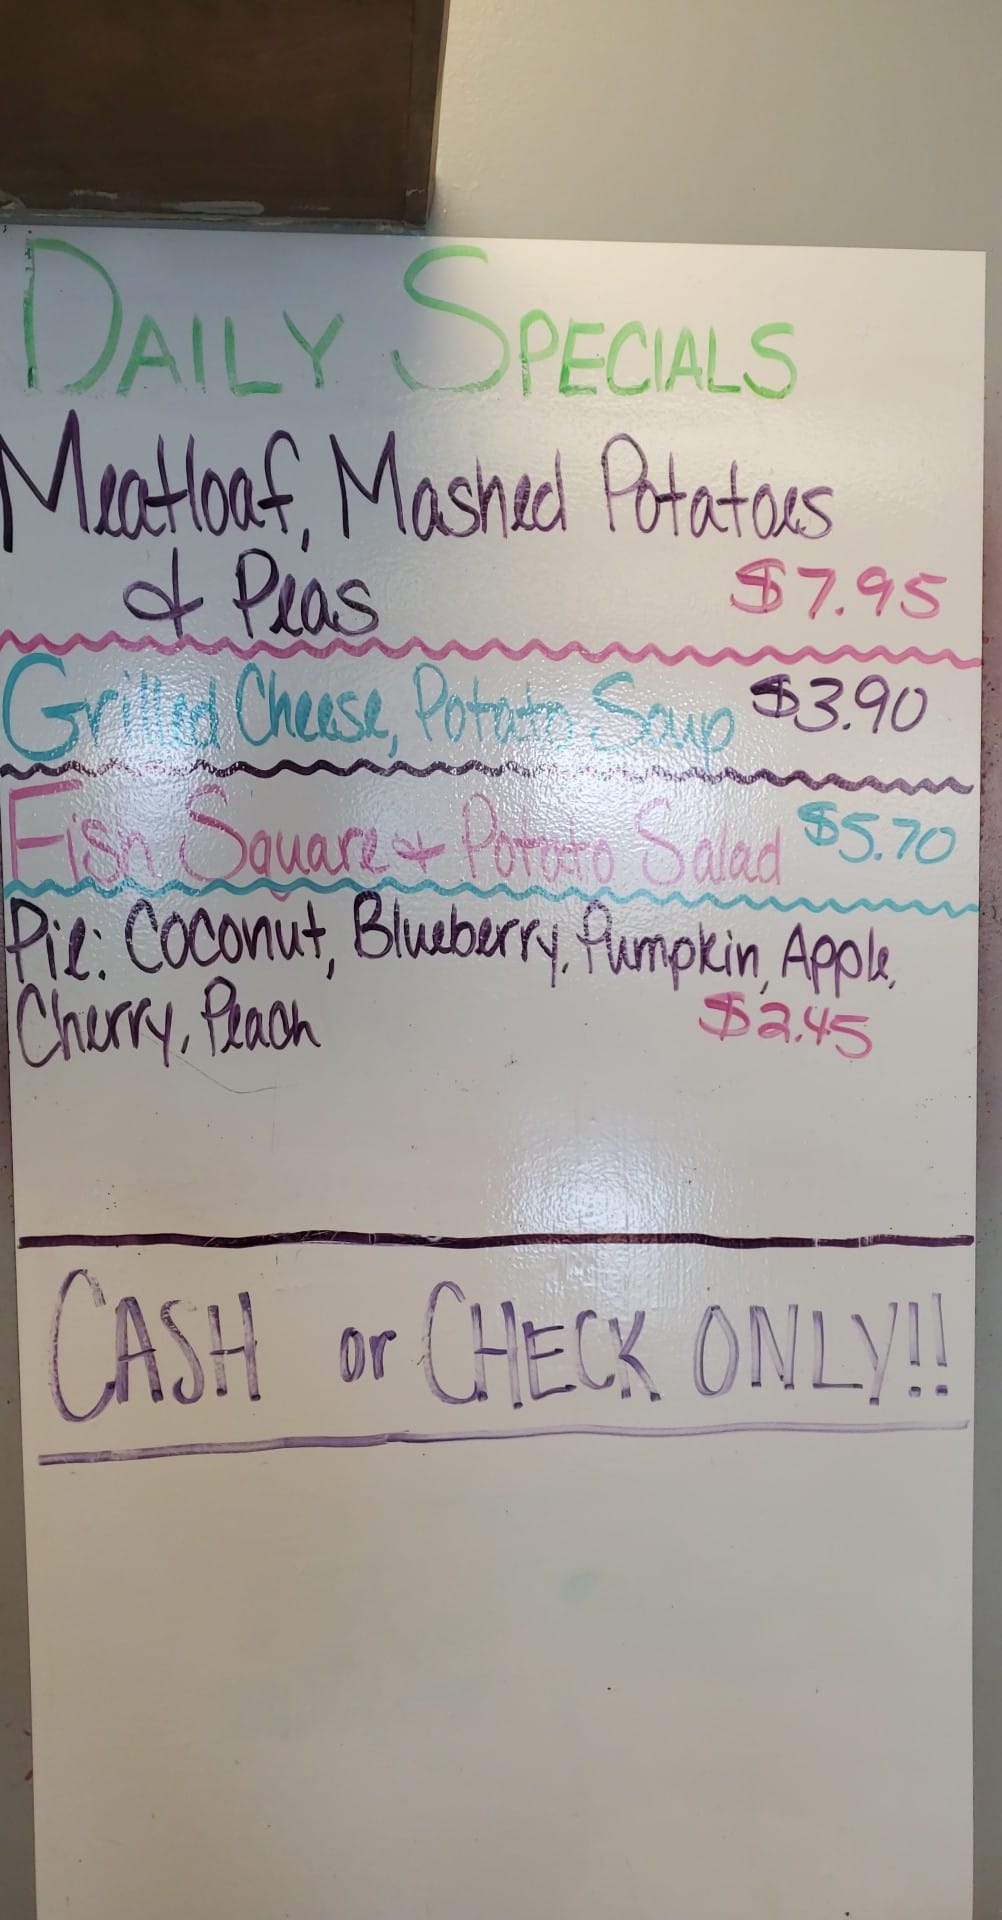 DAILY SPECIALS
Meatloaf, Mashed Potatoes
& Peas $7.95
Grilled Cheese, Potato Soup $3.90
Fish Square & Potato Salad $5.70
Pie: Coconut, Blueberry, Pumpkin, Apple,
Cherry, Peach $2.45
CASH or CHECK ONLY!!